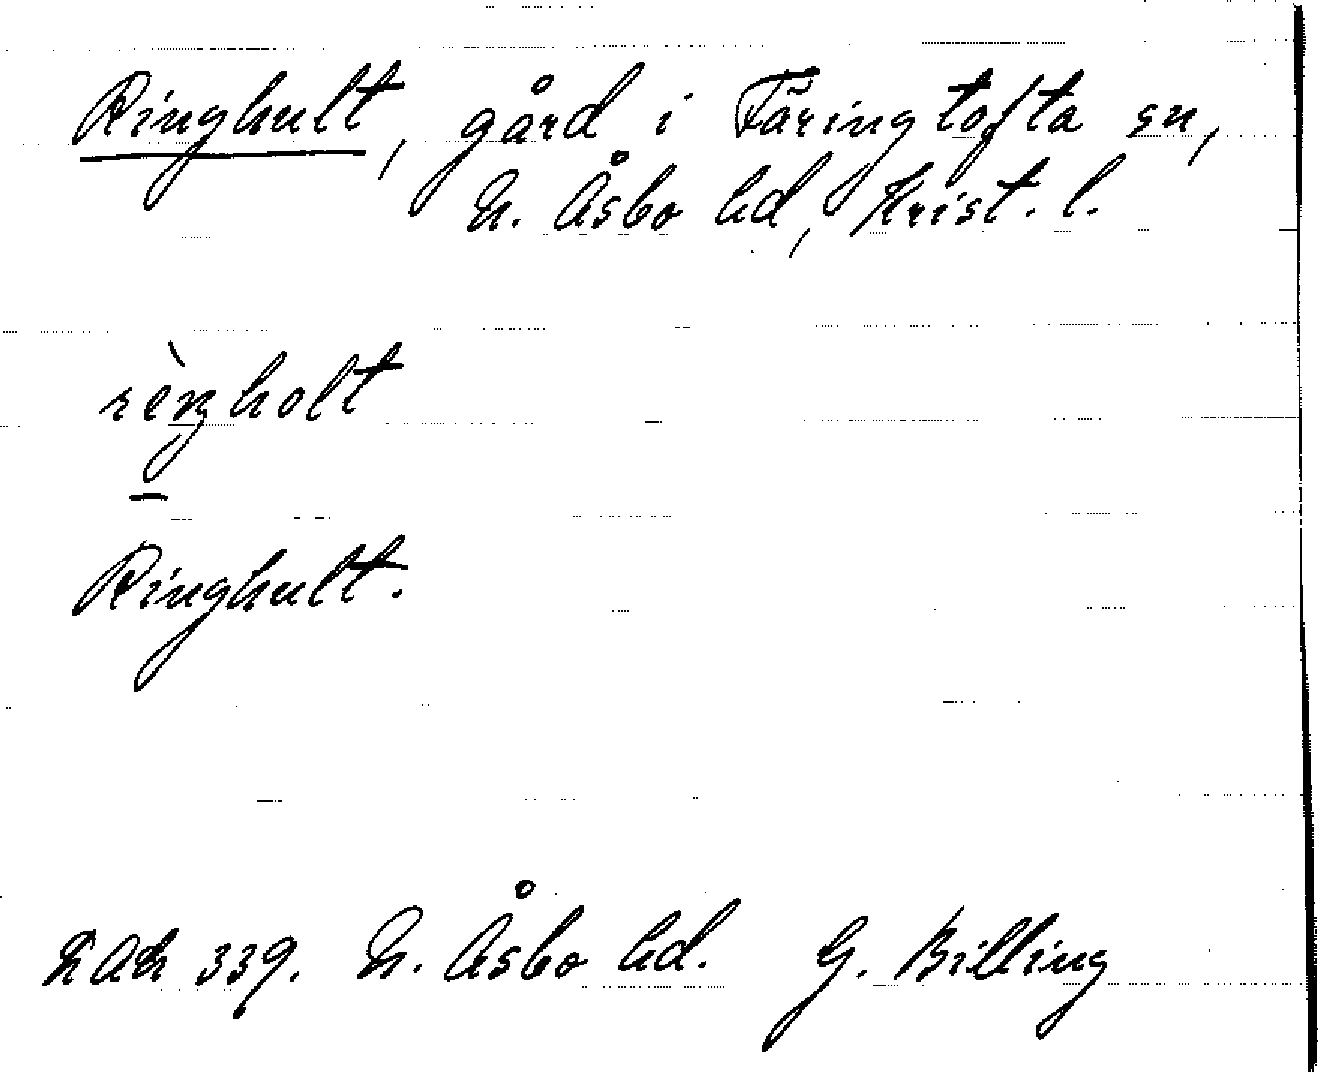 Ringhult, gård i Färingtofta sn,
N. Åsbo hd, Krist. l.
rèŋholt
Ringhult.
339. N. Åsbo hd. G. Billing